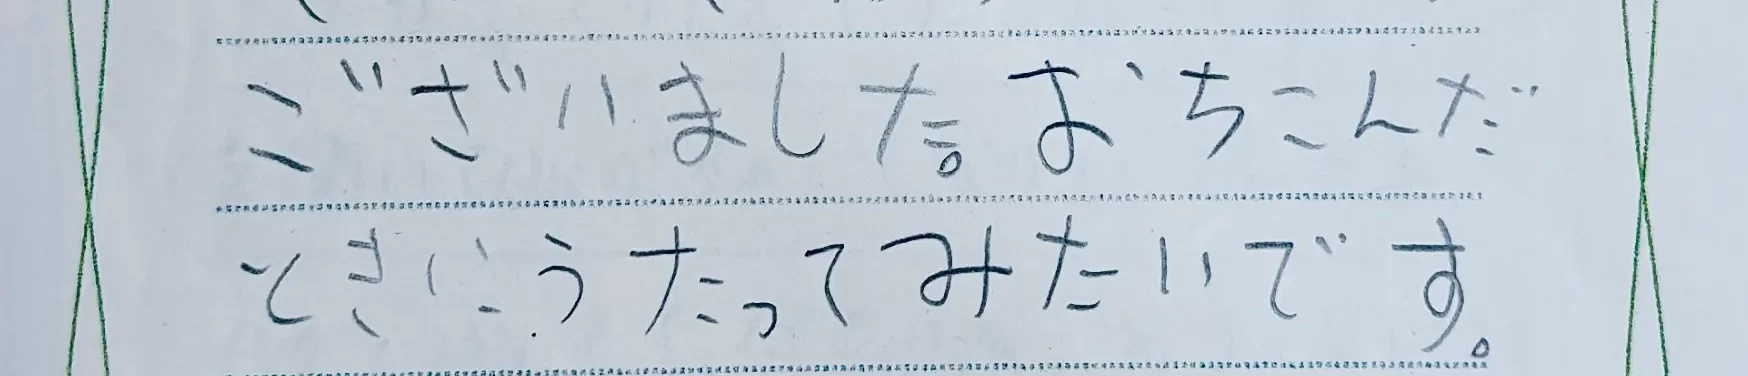 ございました。おちこんだ
ときにうたってみたいです。